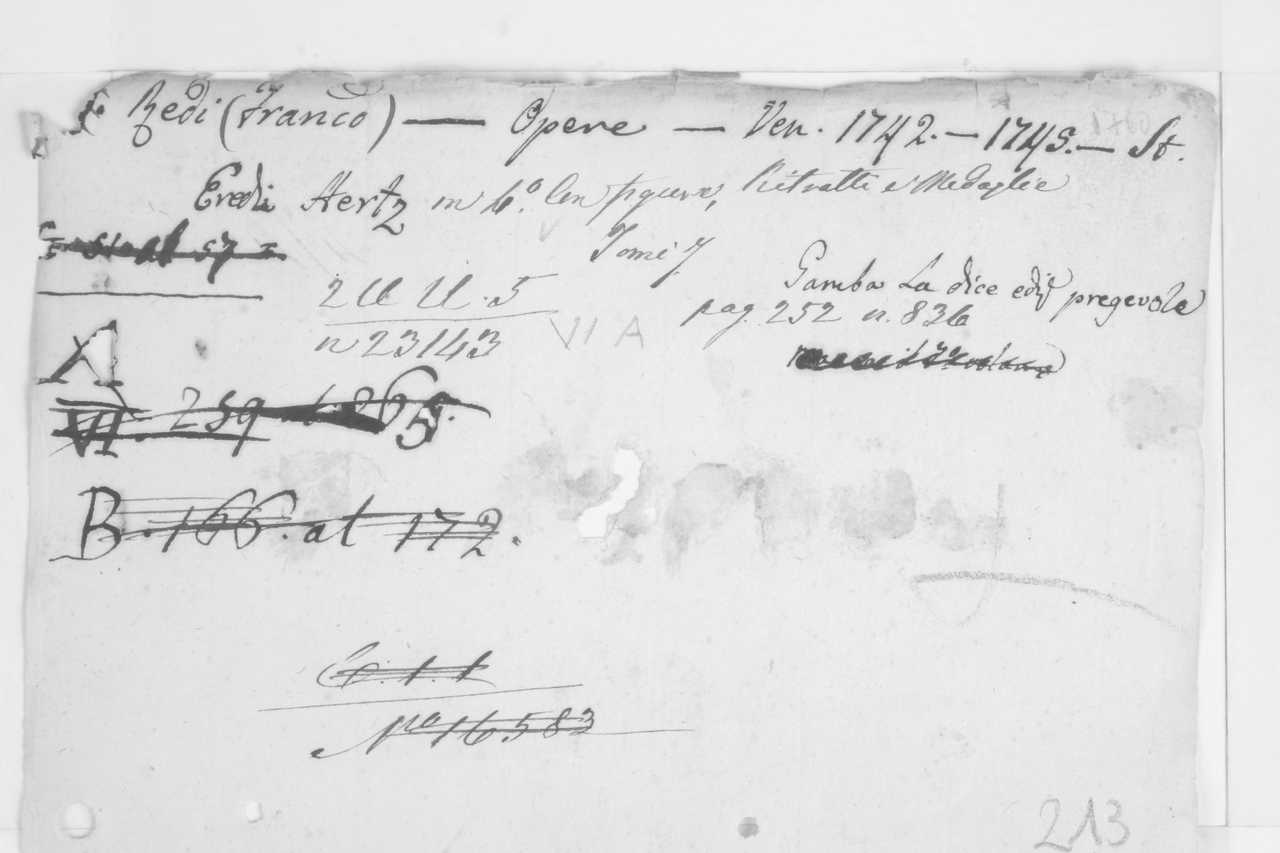 Redi (Franco) — Opere — Ven. 1742. — 1745. — St.
Eredi Hertz in 4º. Con figure, Ritratti e Medaglie
Tomi 7
Gamba La dice ediz pregevole
pag. 252 n. 836
2 U U. 5
n 23143
VI A
XI
VI. 259 265.
B. 166. at 172.
Co. 1. 1
Nº 16583
213